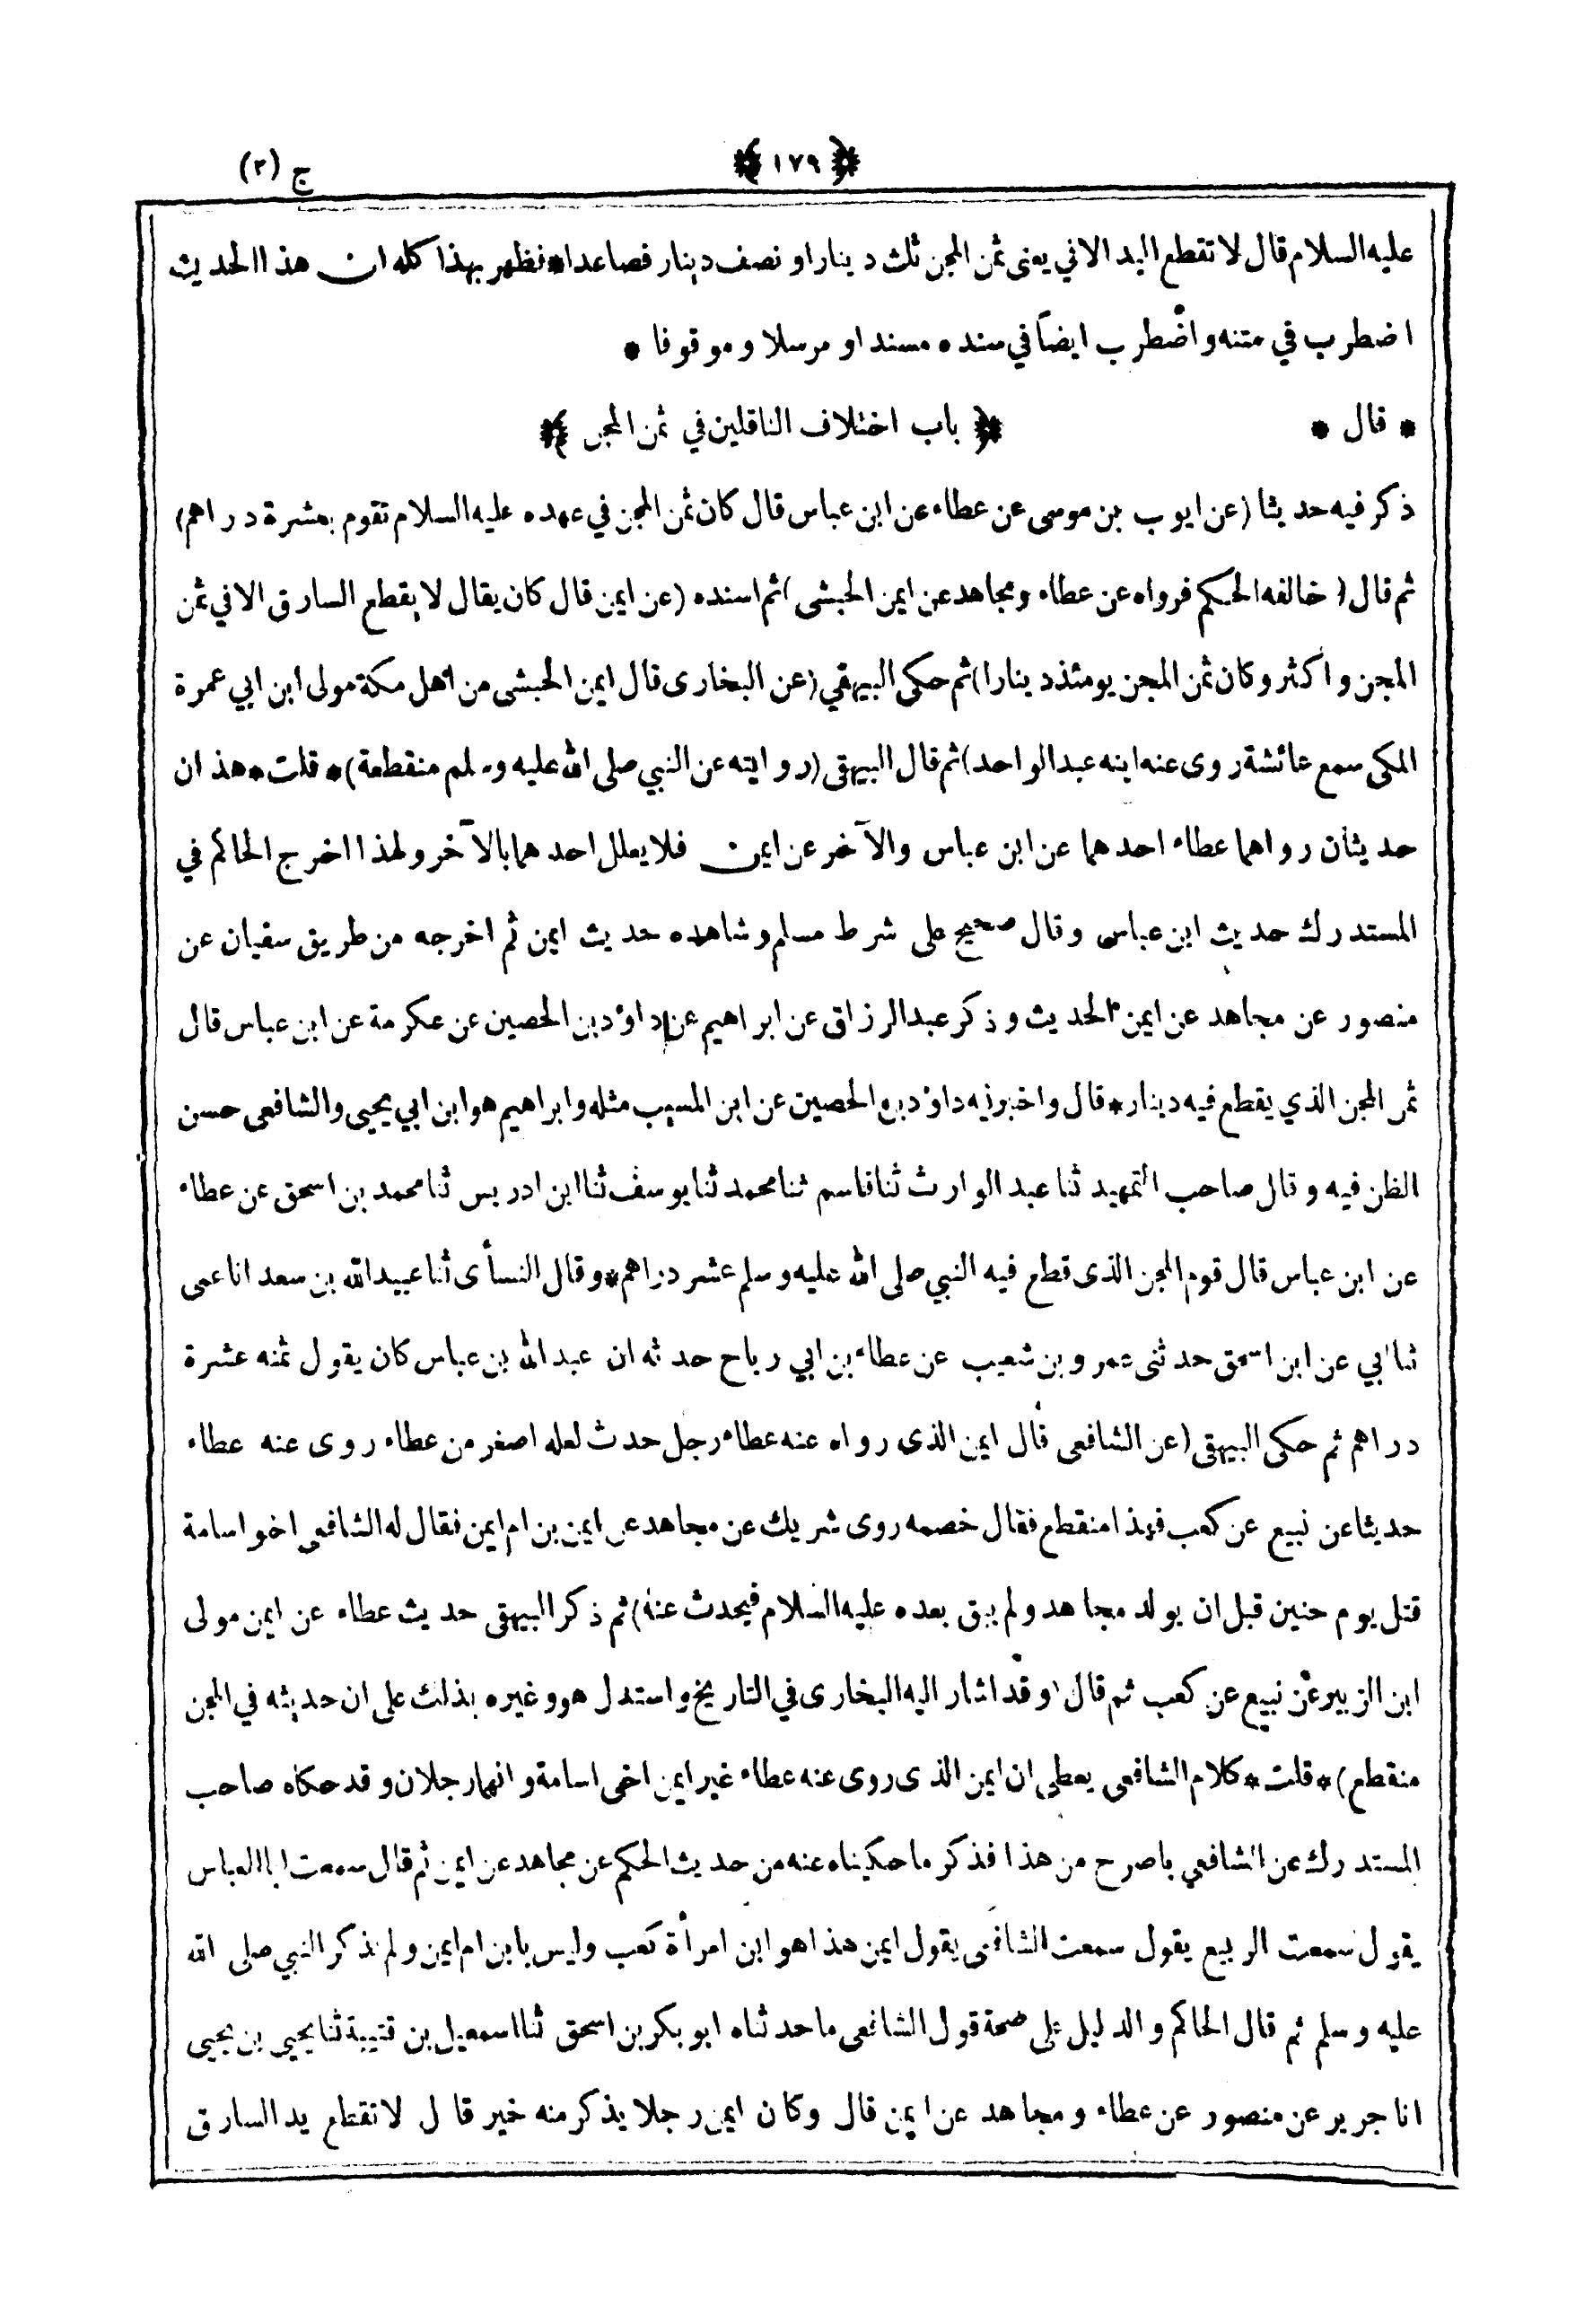 ﴿ ١٧٩ ﴾ ج (٢)
عليه السلام قال لا تقطع اليد الا في يعنى ثمن المجن ثلث دينار او نصف دينار فصاعدا * فظهر بهذا كله ان هذا الحديث
اضطرب في متنه واضطرب ايضاً في سنده مسندا و مرسلا و موقوفا *
* قال * ﴿ باب اختلاف الناقلين في ثمن المجن ﴾
ذكر فيه حديثا (عن ايوب بن موسى عن عطاء عن ابن عباس قال كان ثمن المجن في عهده عليه السلام تقوم بعشرة دراهم)
ثم قال (خالفه الحكم فرواه عن عطاء ومجاهد عن ايمن الحبشى) ثم اسنده (عن ايمن قال كان يقال لا يقطع السارق الا في ثمن
المجن واكثر وكان ثمن المجن يومئذ دينارا) ثم حكى البيهقي (عن البخارى قال ايمن الحبشى من اهل مكة مولى ابن ابي عمرة
المكى سمع عائشة روى عنه ابنه عبد الواحد) ثم قال البيهقى (روايته عن النبي صلى الله عليه وسلم منقطعة) * قلت * هذان
حديثان رواهما عطاء احدهما عن ابن عباس والآخر عن ايمن فلا يعلل احدهما بالآخر ولهذا اخرج الحاكم في
المستدرك حديث ابن عباس وقال صحيح على شرط مسلم وشاهده حديث ايمن ثم اخرجه من طريق سفيان عن
منصور عن مجاهد عن ايمن الحديث وذكر عبد الرزاق عن ابراهيم عن داؤد بن الحصين عن عكرمة عن ابن عباس قال
ثمن المجن الذي يقطع فيه دينار * قال واخبرنيه داؤد بن الحصين عن ابن المسيب مثله وابراهيم هو ابن ابي يحيى والشافعى حسن
الظن فيه وقال صاحب التمهيد ثنا عبد الوارث ثنا قاسم ثنا محمد ثنا يوسف ثنا ابن ادريس ثنا محمد بن اسحق عن عطاء
عن ابن عباس قال قوم المجن الذى قطع فيه النبي صلى الله عليه وسلم عشر دراهم * وقال النسأى ثنا عبيد الله بن سعد انا عمى
ثنا ابي عن ابن اسحق حدثنى عمرو بن شعيب عن عطاء بن ابي رباح حدثه ان عبد الله بن عباس كان يقول ثمنه عشرة
دراهم ثم حكى البيهقى (عن الشافعى قال ايمن الذى رواه عنه عطاء رجل حدث لعله اصغر من عطاء روى عنه عطاء
حديثا عن نبيع عن كعب فهذا منقطع فقال خصمه روى شريك عن مجاهد عن ايمن بن ام ايمن فقال له الشافعى اخو اسامة
قتل يوم حنين قبل ان يولد مجاهد ولم يبق بعده عليه السلام فيحدث عنه) ثم ذكر البيهقى حديث عطاء عن ايمن مولى
ابن الزبير عن نبيع عن كعب ثم قال (وقد اشار اليه البخارى في التاريخ واستدل هو وغيره بذلك على ان حديثه في المجن
منقطع) * قلت * كلام الشافعى يعطى ان ايمن الذى روى عنه عطاء غير ايمن اخى اسامة وانهما رجلان وقد حكاه صاحب
المستدرك عن الشافعي باصرح من هذا فذكر ما حكيناه عنه من حديث الحكم عن مجاهد عن ايمن ثم قال سمعت ابا العباس
يقول سمعت الربيع يقول سمعت الشافعى يقول ايمن هذا هو ابن امرأة كعب وليس بابن ام ايمن ولم يذكر النبي صلى الله
عليه وسلم ثم قال الحاكم والدليل على صحة قول الشافعى ما حدثناه ابو بكر بن اسحق ثنا اسمعيل بن قتيبة ثنا يحيى بن يحيى
انا جرير عن منصور عن عطاء ومجاهد عن ايمن قال وكان ايمن رجلا يذكر منه خير قال لا تقطع يد السارق